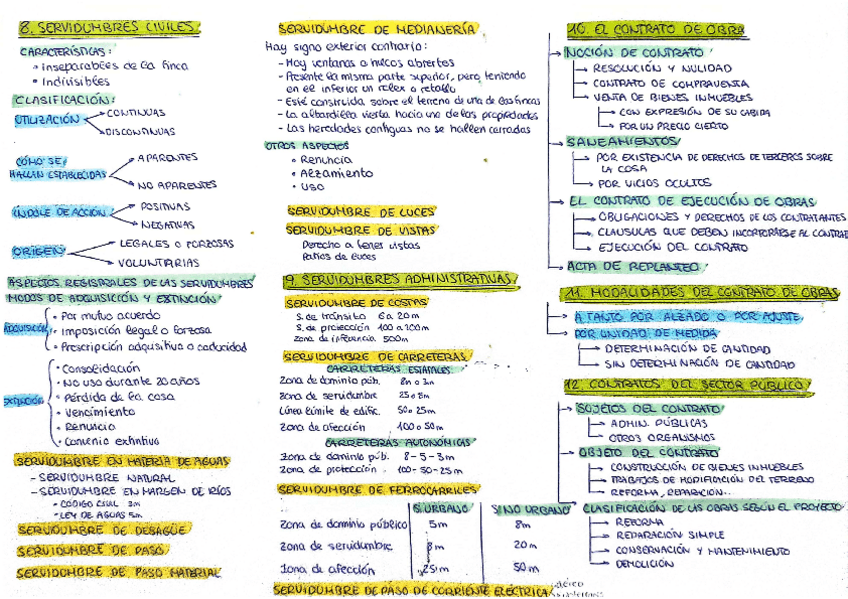 8. SERVIDUMBRES CIVILES
CARACTERÍSTICAS:
• Inseparables de la finca
• Indivisibles
CLASIFICACIÓN:
UTILIZACIÓN
CONTINUAS
DISCONTINUAS
CÓMO SE HALLAN ESTABLECIDAS
APARENTES
NO APARENTES
ÍNDOLE DE ACCION
POSITIVAS
NEGATIVAS
ORIGEN
LEGALES O FORZOSAS
VOLUNTARIAS
ASPECTOS REGISTRALES DE LAS SERVIDUMBRES
MODOS DE ADQUISICIÓN Y EXTINCIÓN
ADQUISICIÓN
• Por mutuo acuerdo
• Imposición legal o forzosa
• Prescripción adquisitiva o caducidad
EXTINCIÓN
• Consolidación
• No uso durante 20 años
• Pérdida de la cosa
• Vencimiento
• Renuncia
• Convenio extintivo
SERVIDUMBRE EN MATERIA DE AGUAS
- SERVIDUMBRE NATURAL
- SERVIDUMBRE EN MARGEN DE RÍOS
• CODIGO CIVIL 3m
• LEY DE AGUAS 5m
SERVIDUMBRE DE DESAGÜE
SERVIDUMBRE DE PASO
SERVIDUMBRE DE PASO MATERIAL
SERVIDUMBRE DE MEDIANERÍA
Hay signo exterior contrario:
- Hay ventanas o huecos abiertos
- Presente la misma parte superior, pero teniendo
en el inferior un relex o retallo
- Esté construida sobre el terreno de una de las fincas
- La albardilla vierta hacia una de las propiedades
- Las heredades contiguas no se hallen cerradas
OTROS ASPECTOS
• Renuncia
• Alzamiento
• Uso
SERVIDUMBRE DE LUCES
SERVIDUMBRE DE VISTAS
Derecho a tener vistas
Patios de luces
9. SERVIDUMBRES ADMINISTRATIVAS
SERVIDUMBRE DE COSTAS
S. de tránsito 6 a 20m
S. de protección 100 a 200m
Zona de influencia 500m
SERVIDUMBRE DE CARRETERAS
CARRETERAS ESTATALES
Zona de dominio púb. 8m o 3m
Zona de servidumbre 25 o 8m
Línea límite de edific. 50 o 25m
Zona de afección 100 o 50m
CARRETERAS AUTONÓMICAS
Zona de dominio púb. 8-5-3m
Zona de protección 100-50-25m
SERVIDUMBRE DE FERROCARRILES
S. URBANO S. NO URBANO
Zona de dominio público 5m 8m
Zona de servidumbre 8m 20m
Zona de afección 25m 50m
SERVIDUMBRE DE PASO DE CORRIENTE ELÉCTRICA
10. EL CONTRATO DE OBRA
NOCIÓN DE CONTRATO
RESOLUCIÓN Y NULIDAD
CONTRATO DE COMPRAVENTA
VENTA DE BIENES INMUEBLES
CON EXPRESIÓN DE SU CABIDA
POR UN PRECIO CIERTO
SANEAMIENTOS
POR EXISTENCIA DE DERECHOS DE TERCEROS SOBRE
LA COSA
POR VICIOS OCULTOS
EL CONTRATO DE EJECUCIÓN DE OBRAS
OBLIGACIONES Y DERECHOS DE LOS CONTRATANTES
CLAUSULAS QUE DEBEN INCORPORARSE AL CONTRAT
EJECUCIÓN DEL CONTRATO
ACTA DE REPLANTEO
11. MODALIDADES DEL CONTRATO DE OBRAS
A TANTO POR ALZADO O POR AJUSTE
POR UNIDAD DE MEDIDA
DETERMINACIÓN DE CANTIDAD
SIN DETERMINACIÓN DE CANTIDAD
12. CONTRATOS DEL SECTOR PÚBLICO
SUJETOS DEL CONTRATO
ADMIN. PÚBLICAS
OTROS ORGANISMOS
OBJETO DEL CONTRATO
CONSTRUCCIÓN DE BIENES INMUEBLES
TRABAJOS DE MODIFICACIÓN DEL TERRENO
REFORMA, REPARACION...
CLASIFICACIÓN DE LAS OBRAS SEGÚN EL PROYECTO
REFORMA
REPARACIÓN SIMPLE
CONSERVACIÓN Y MANTENIMIENTO
DEMOLICIÓN